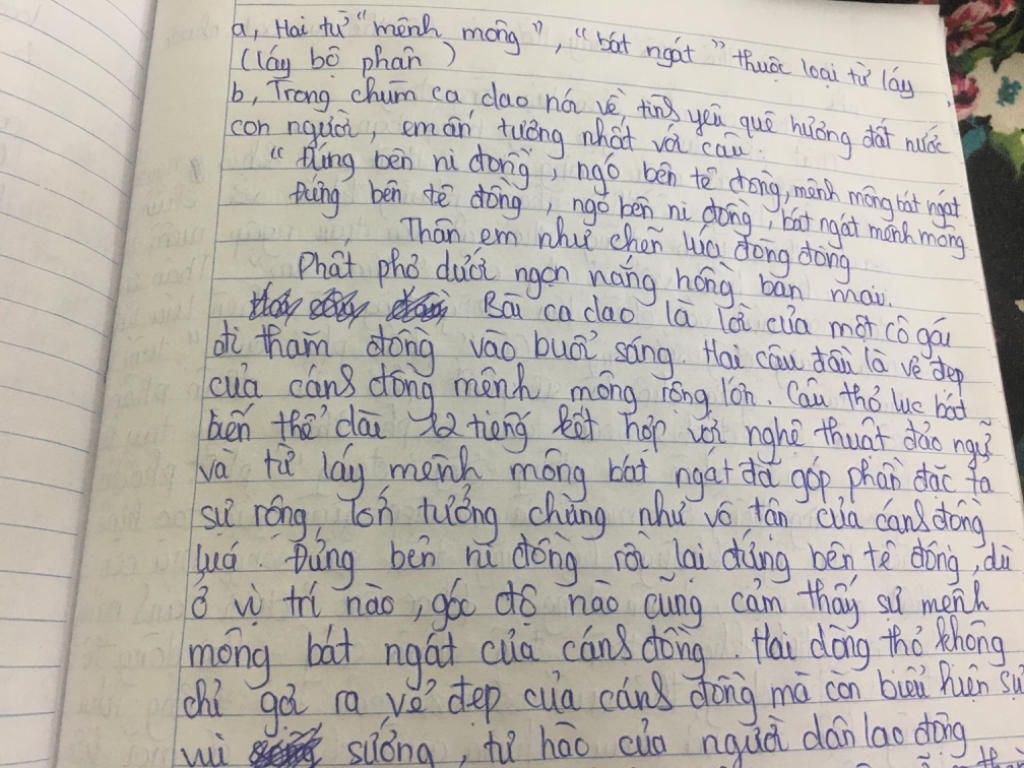 a, Hai từ "mênh mông", "bát ngát" thuộc loại từ láy
(láy bộ phận)
b, Trong chùm ca dao nói về tình yêu quê hương đất nước
con người, em ấn tượng nhất với câu:
"Đứng bên ni đồng, ngó bên tê đồng, mênh mông bát ngát
Đứng bên tê đồng, ngó bên ni đồng, bát ngát mênh mông
Thân em như chẽn lúa đòng đòng
Phất phơ dưới ngọn nắng hồng ban mai.
Bài ca dao là lời của một cô gái
đi thăm đồng vào buổi sáng. Hai câu đầu là vẻ đẹp
của cánh đồng mênh mông rộng lớn. Câu thơ lục bát
biến thể dài 12 tiếng kết hợp với nghệ thuật đảo ngữ
và từ láy mênh mông bát ngát đã góp phần đặc tả
sự rộng lớn tưởng chừng như vô tận của cánh đồng
lúa. Đứng bên ni đồng rồi lại đứng bên tê đồng, dù
ở vị trí nào, góc độ nào cũng cảm thấy sự mênh
mông bát ngát của cánh đồng. Hai dòng thơ không
chỉ gợi ra vẻ đẹp của cánh đồng mà còn biểu hiện sự
vui sướng, tự hào của người dân lao động